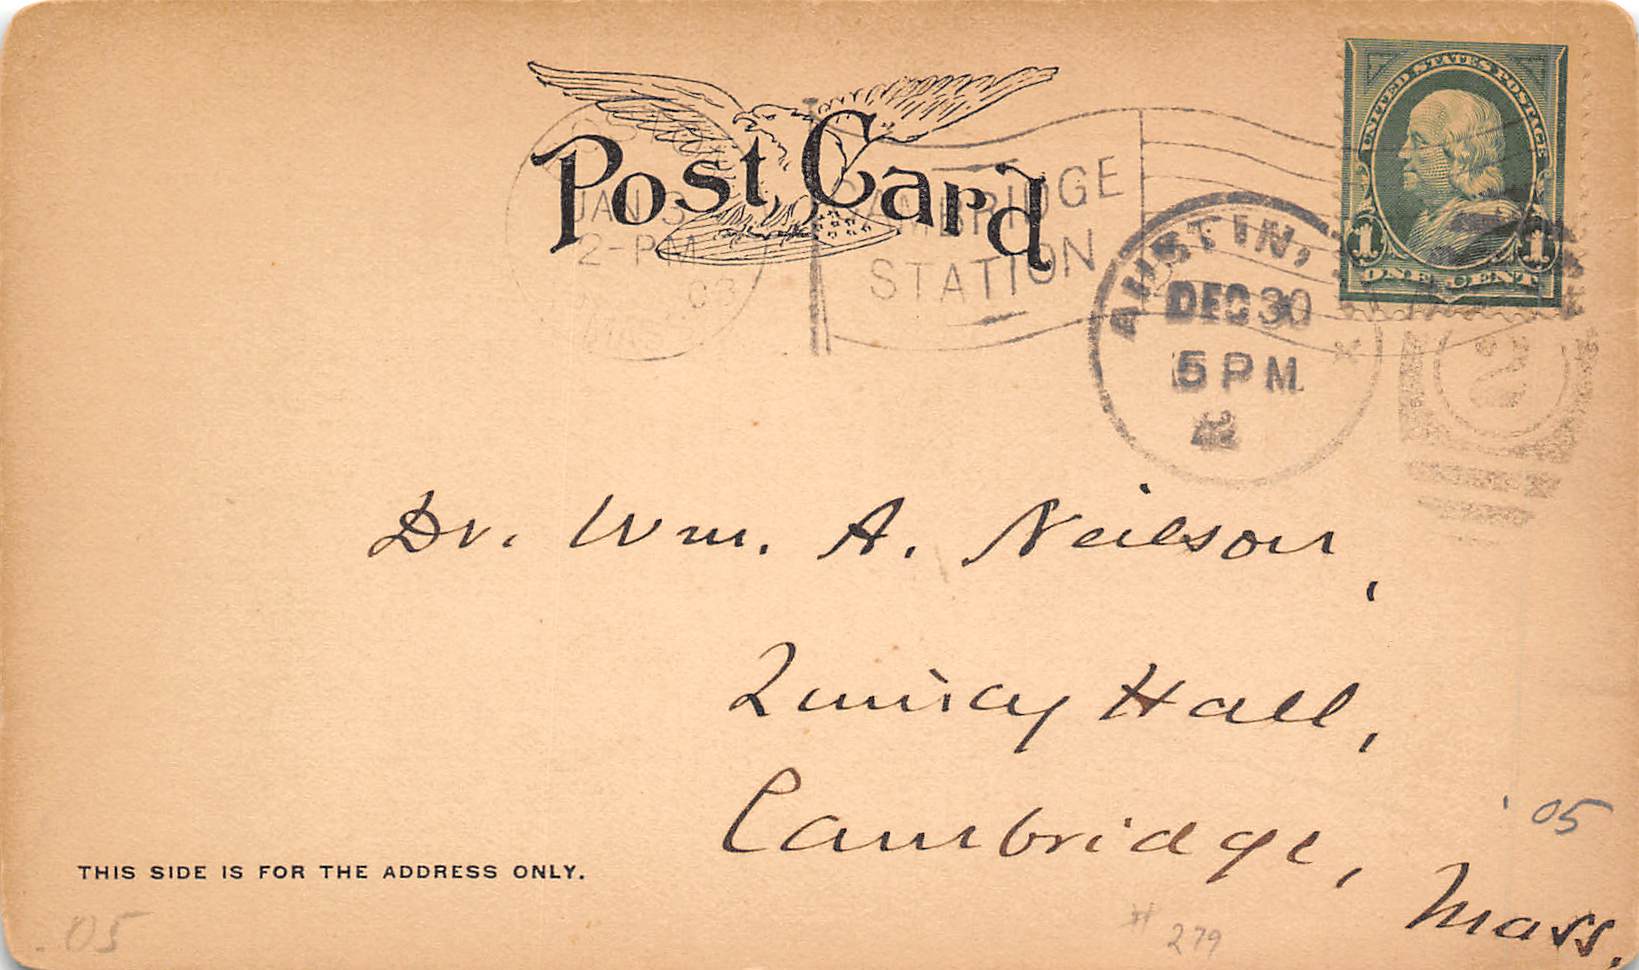 Post Card
UNITED STATES POSTAGE
1 1
ONE CENT
JAN 3
2-PM
03
MASS
CAMBRIDGE
STATION
AUSTIN,
DEC 30
5 PM
2
Dr. Wm. A. Neilson,
Quincy Hall,
Cambridge,
Mass.
'05
THIS SIDE IS FOR THE ADDRESS ONLY.
.05
# 279